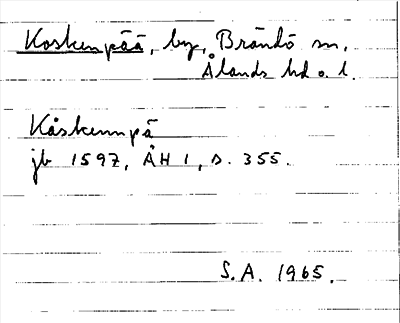 Koskenpää, by, Brändö sn,
Ålands hd o. l.
Kåskennpä
jb 1597, ÅH 1, s. 355.
S.A. 1965.